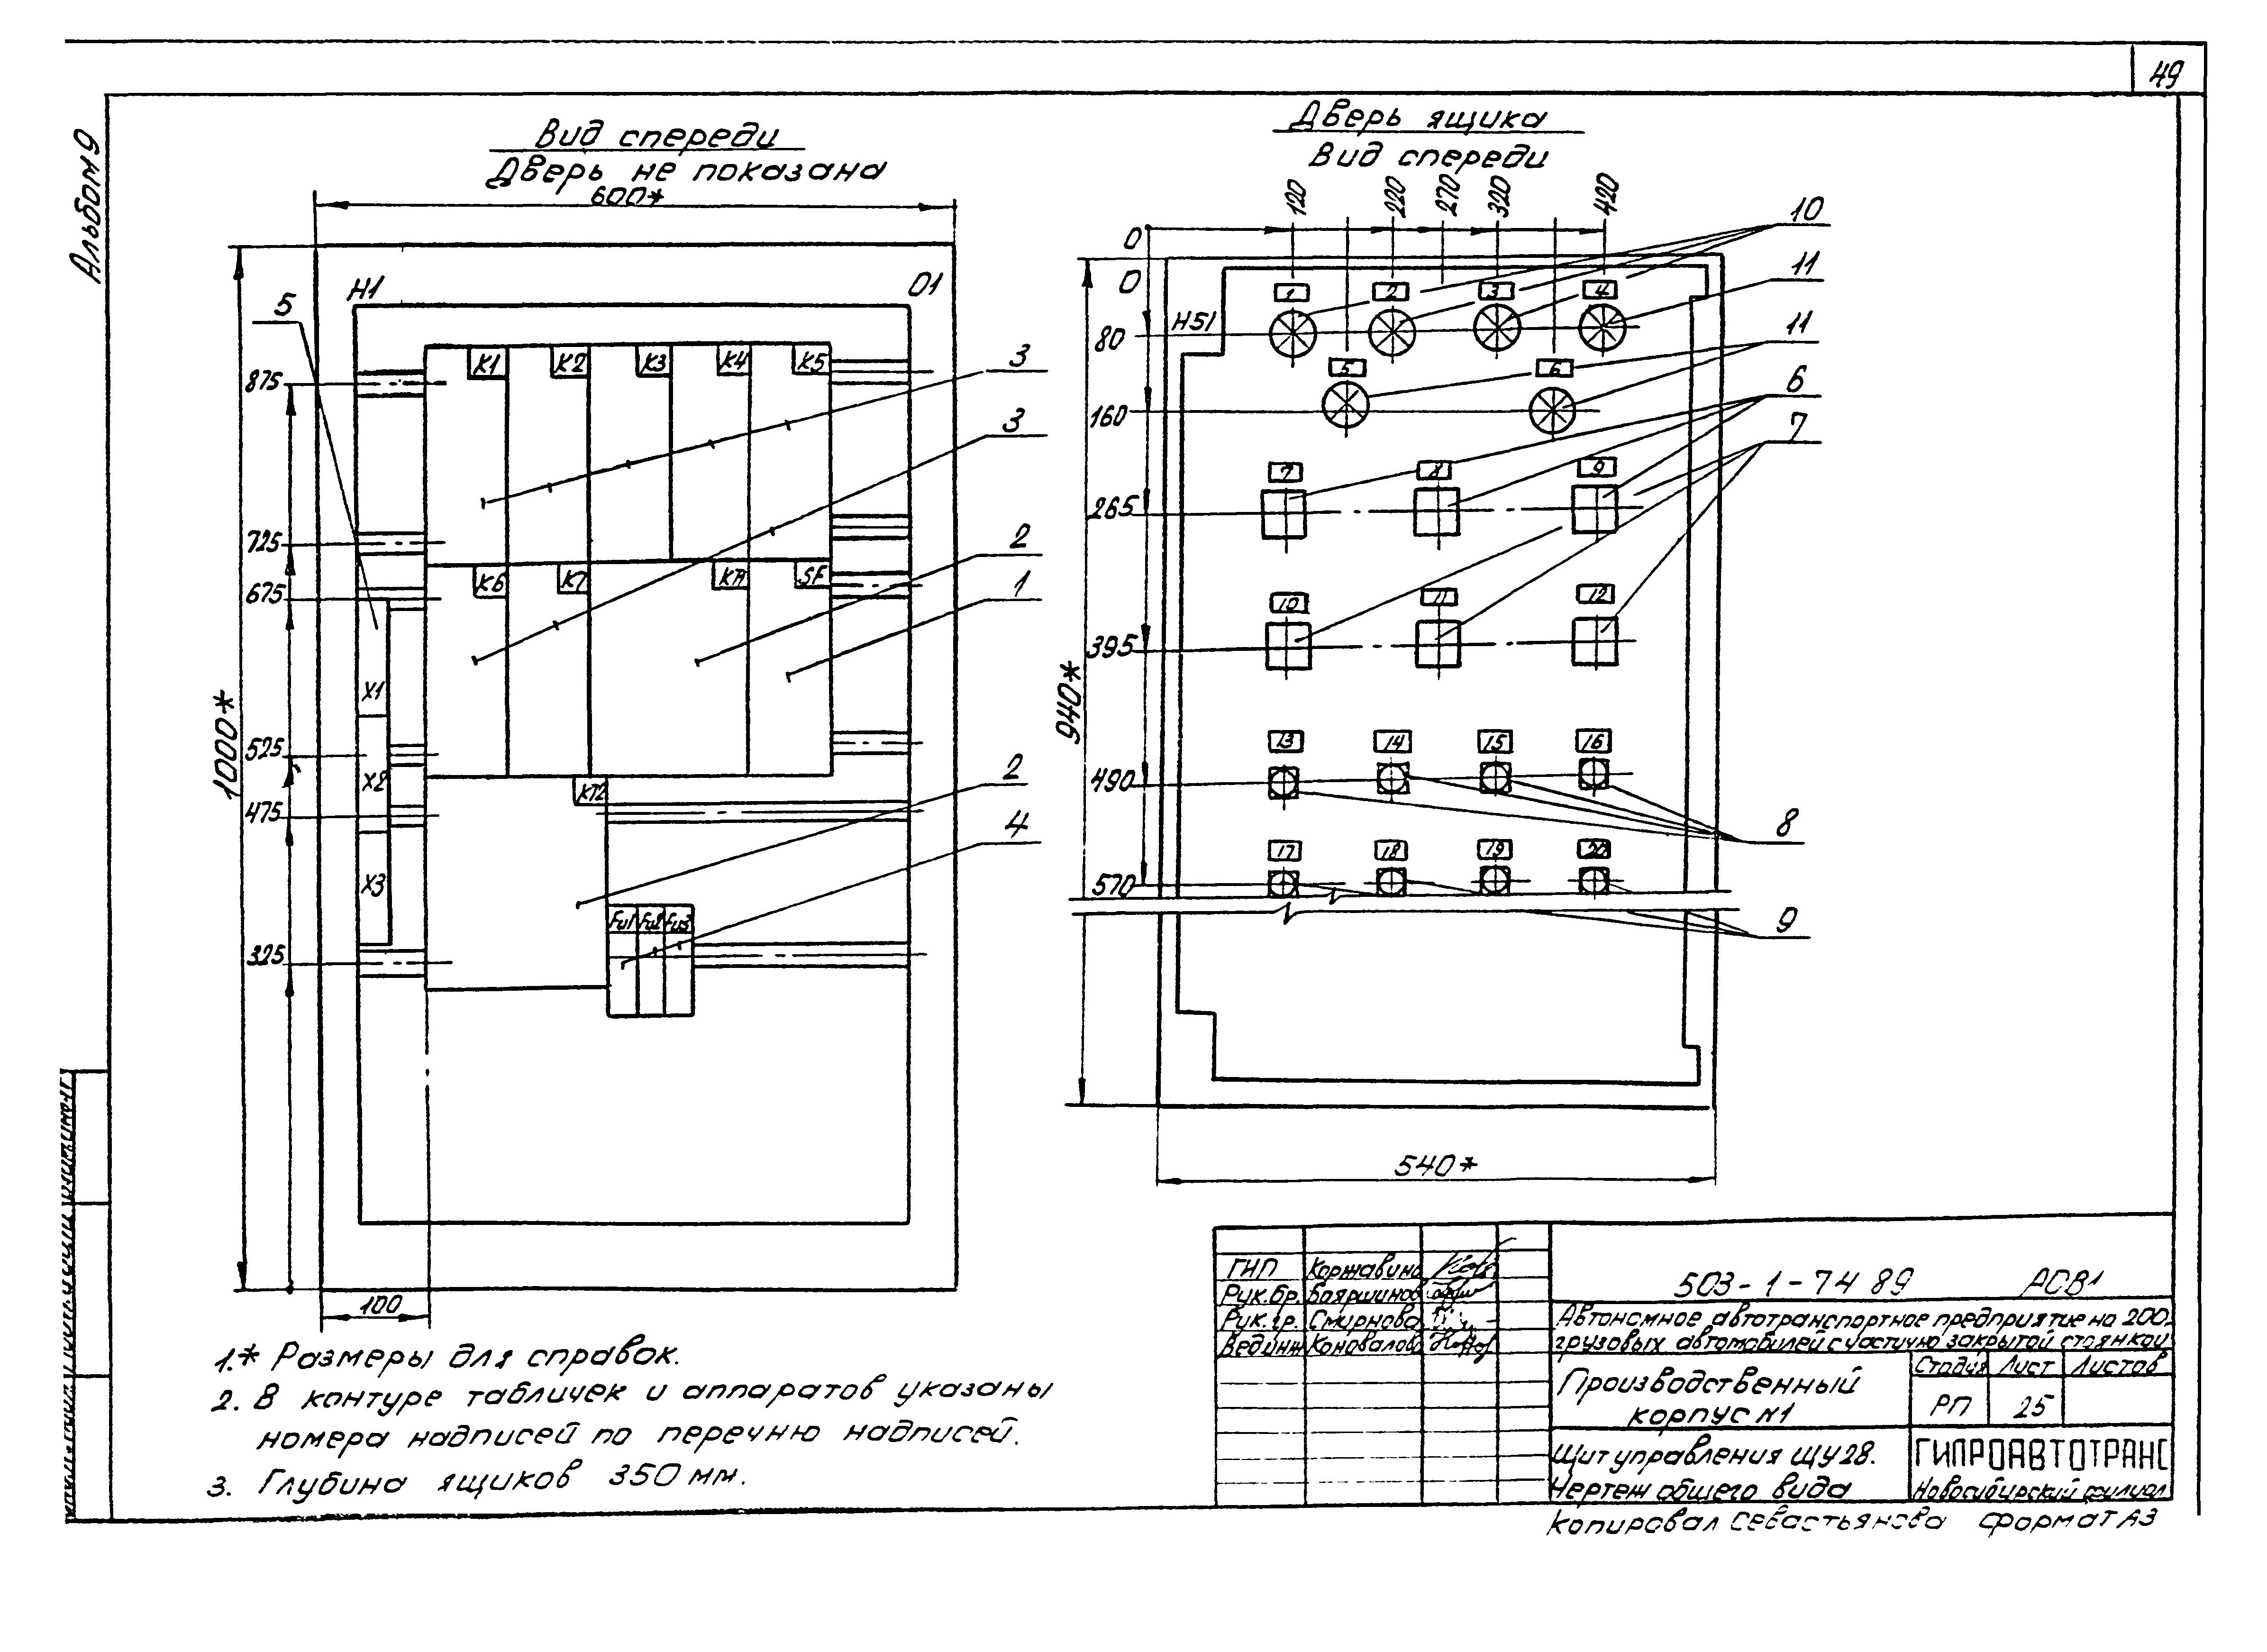 49
Альбом 9
Вид спереди
Дверь не показана
600*
Н1
01
5
К1
К2
К3
К4
К5
3
3
2
1
2
4
К6
К7
SF
КТ2
Х1
Х2
Х3
Fu1
Fu2
Fu3
875
725
675
525
475
325
1000*
100
Дверь ящика
Вид спереди
0
120
220
270
320
420
0
80
160
265
395
490
570
940*
540*
Н51
1
2
3
4
5
6
7
8
9
10
11
12
13
14
15
16
17
18
19
20
10
11
11
6
7
8
9
1.* Размеры для справок.
2. В контуре табличек и аппаратов указаны
номера надписей по перечню надписей.
3. Глубина ящиков 350 мм.
ГИП Коржавина
Рук.бр. Бояршинов
Рук.гр. Смирнова
Вед.инж Коновалова
503-1-74 89 АСВ1
Автономное автотранспортное предприятие на 200
грузовых автомобилей с частично закрытой стоянкой
Производственный
корпус №1
Стадия Лист Листов
РП 25
Щит управления ЩУ28.
Чертеж общего вида
ГИПРОАВТОТРАНС
Новосибирский филиал
Копировал Севастьянова формат А3